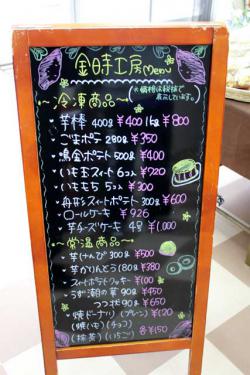 金時工房 Menu
※価格は税抜で
表示しています。
～冷凍商品～
芋棒 400g ¥400 1kg ¥800
ごまポテ 280g ¥350
鳴金ポテト 500g ¥400
いも玉スイート 6コ入 ¥720
いももち 5コ入 ¥300
舟形スイートポテト 300g ¥600
ロールケーキ ¥926
芋チーズケーキ 4号 ¥1,000
～常温商品～
芋けんぴ 300g ¥500
芋かりんとう 180g ¥380
スイートポテトクッキー ¥100
うず潮の華 90g ¥450
つつ状 90g ¥650
焼ドーナツ (プレーン) ¥120
(焼いも) (チョコ)
(抹茶) (いちご) 各¥150